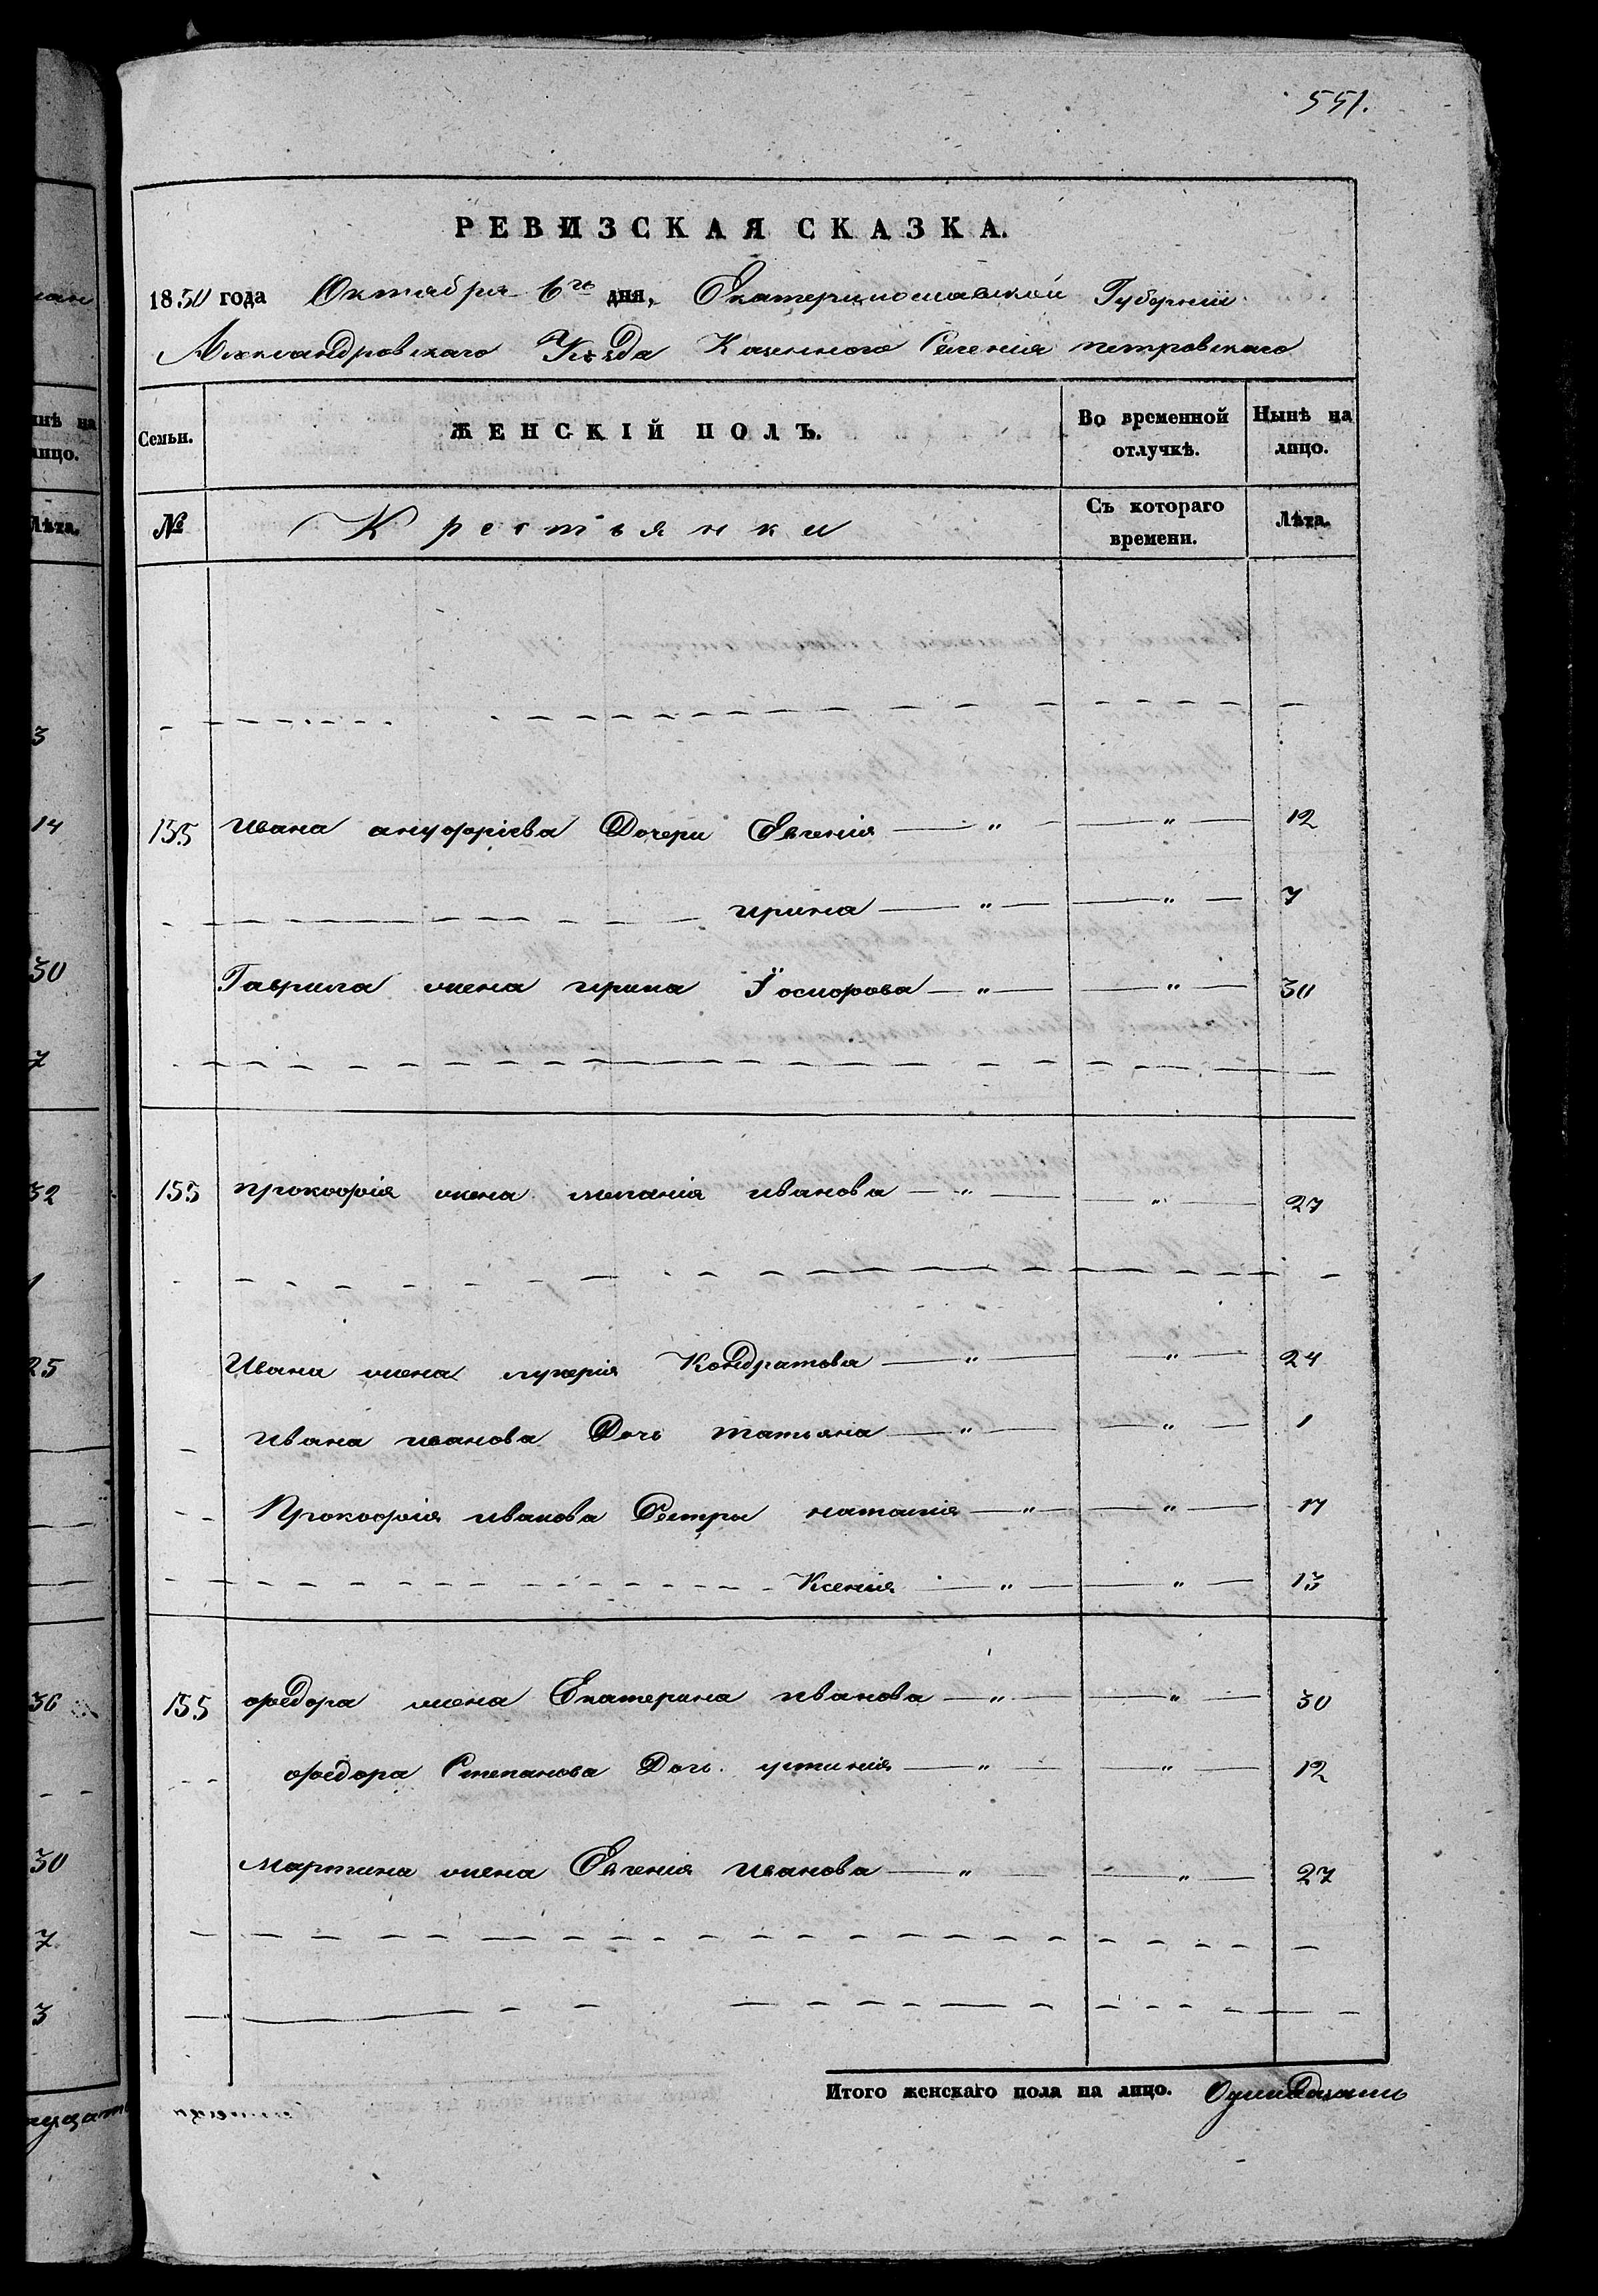 551.
РЕВИЗСКАЯ СКАЗКА.
1850 года Октября 6го дня, Екатеринославской Губернiи
Александровскаго Уѣзда Казенного Селенiя петровскаго
Семьи.
ЖЕНСКІЙ ПОЛЪ.
Во временной отлучкѣ.
Нынѣ на лицо.
№
Крестьянки
Съ котораго времени.
Лѣта.
155 Ивана ануфрiева Дочери Евгенiя — „ — „ — 12
ирина — „ — „ — 7
Гаврила жена ирина — „ — „ — 30
155 прокофiя жена меланiя иванова — „ — „ — 27
Ивана жена лукерiя Кондратова — „ — „ — 24
ивана иванова Дочь татьяна — „ — „ — 1
Прокофiя иванова Сестры наталiя — „ — „ — 17
Ксенiя — „ — „ — 13
155 федора жена Екатерина иванова — „ — „ — 30
федора Степанова Дочь устинiя — „ — „ — 12
мартина жена Евгенiя иванова — „ — „ — 27
Итого женскаго пола на лицо. Одинадцать
нѣ на
лицо.
Лѣта.
3
14
30
7
32
1
25
36
30
7
3